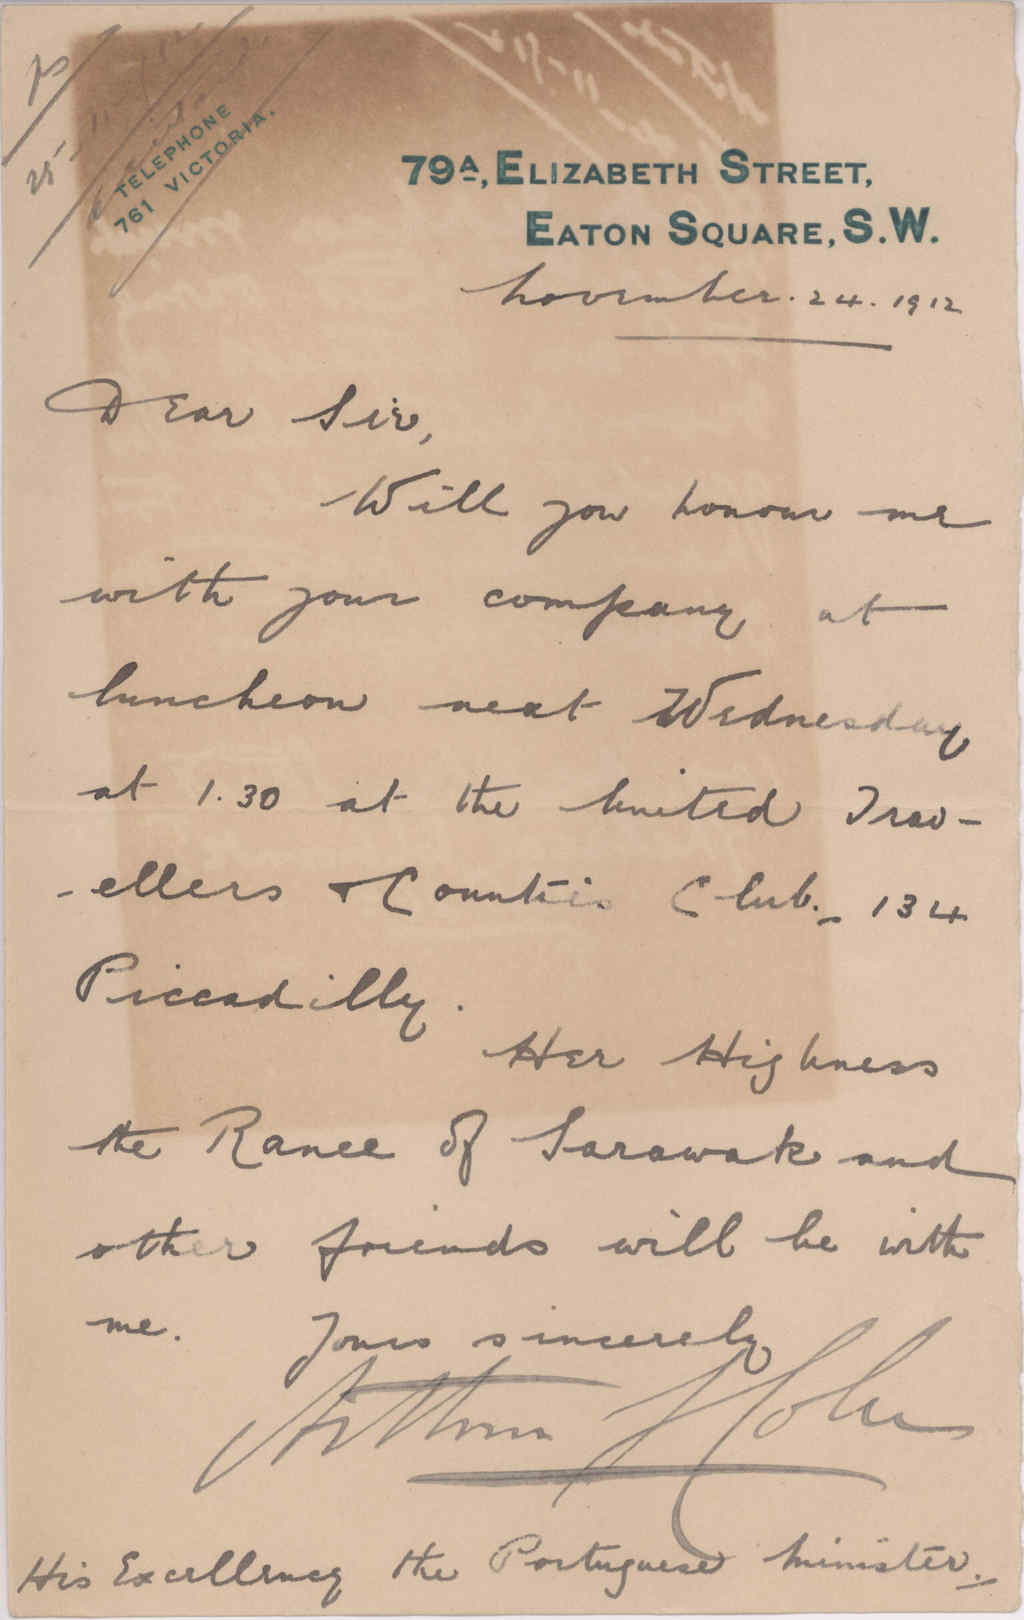 TELEPHONE
761 VICTORIA.
79A, ELIZABETH STREET,
EATON SQUARE, S.W.
November. 24. 1912
Dear Sir,
Will you honour me
with your company at
luncheon next Wednesday
at 1.30 at the United Trav-
-ellers & Countries Club. 134
Piccadilly.
Her Highness
the Ranee of Sarawak and
other friends will be with
me. Yours sincerely
Arthur
His Excellency the Portuguese Minister.